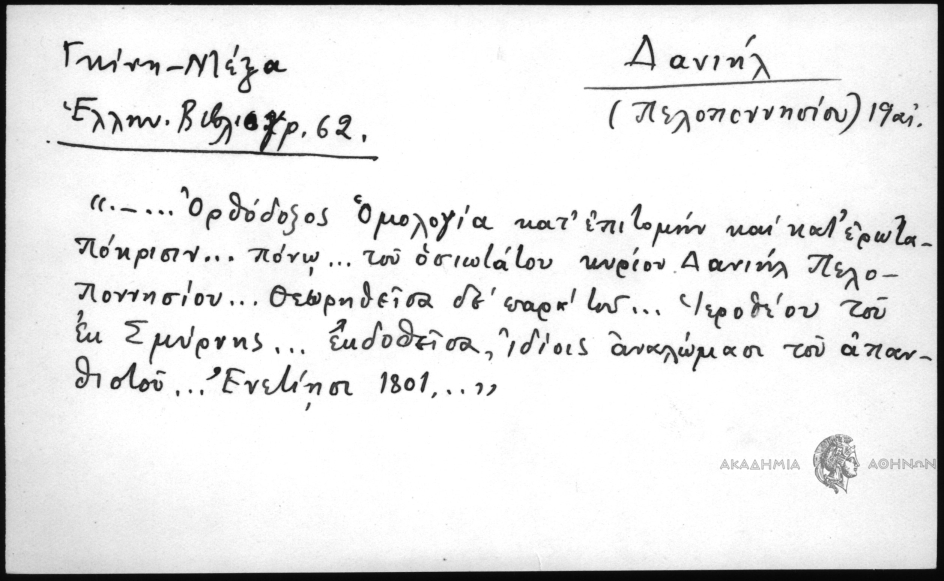 Γκίνη-Μέξα
Ἑλλην. Βιβλιογρ. 62.
Δανιήλ
(Πελοποννησίου) 19 αἰ.
«.–... Ὀρθόδοξος Ὁμολογία κατ' ἐπιτομήν καί κατ' ἐρωτα-
πόκρισιν... πόνῳ... τοῦ ὁσιωτάτου κυρίου Δανιήλ Πελο-
ποννησίου... Θεωρηθεῖσα δέ παρά τοῦ... Ἱεροθέου τοῦ
ἐκ Σμύρνης... ἐκδοθεῖσα, ἰδίοις ἀναλώμασι τοῦ ἀπαν-
θιστοῦ... Ἐνετίῃσι 1801,...»
ΑΚΑΔΗΜΙΑ ΑΘΗΝΩΝ